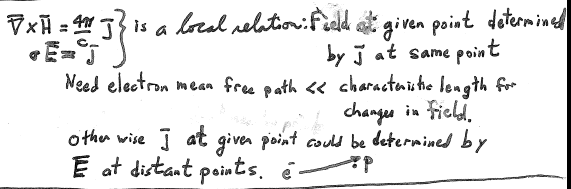 ∇̄×H̄ = 4π/c J̄ } is a local relation: Field at given point determined
σĒ = J̄ by J̄ at same point
Need electron mean free path << characteristic length for
changes in field.
Otherwise J̄ at given point could be determined by
Ē at distant points. ē → P